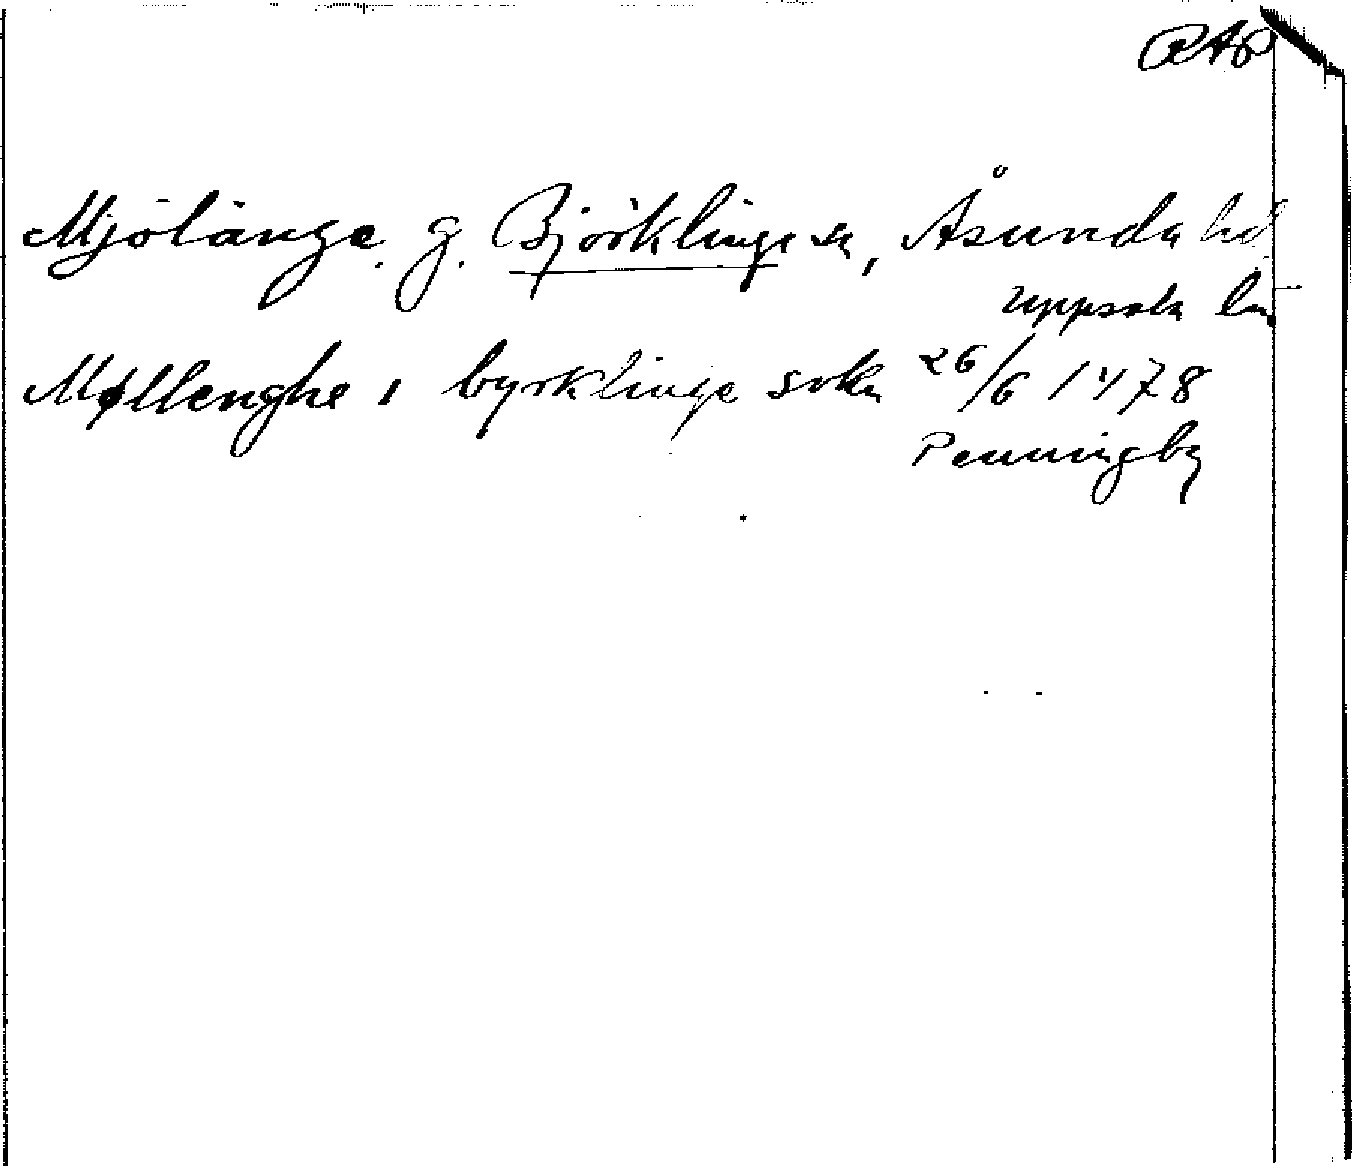 RAp
Mjölänge. g. Björklinge sn, Åsunda hd
Uppsala ln.
Møllenghe i byrklinge sokn 26/6 1478
Penningby